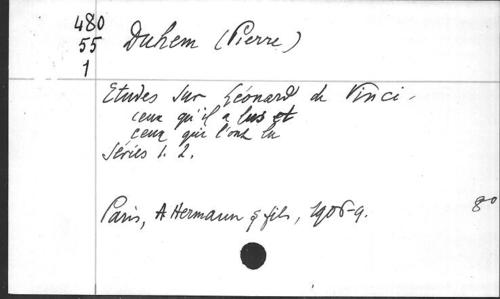 480
55
1
Duhem (Pierre)
Etudes sur Léonard de Vinci.
ceux qu'il a lus et
ceux qui l'ont lu
Séries 1. 2.
Paris, A Hermann & fils, 1906-9.
8°